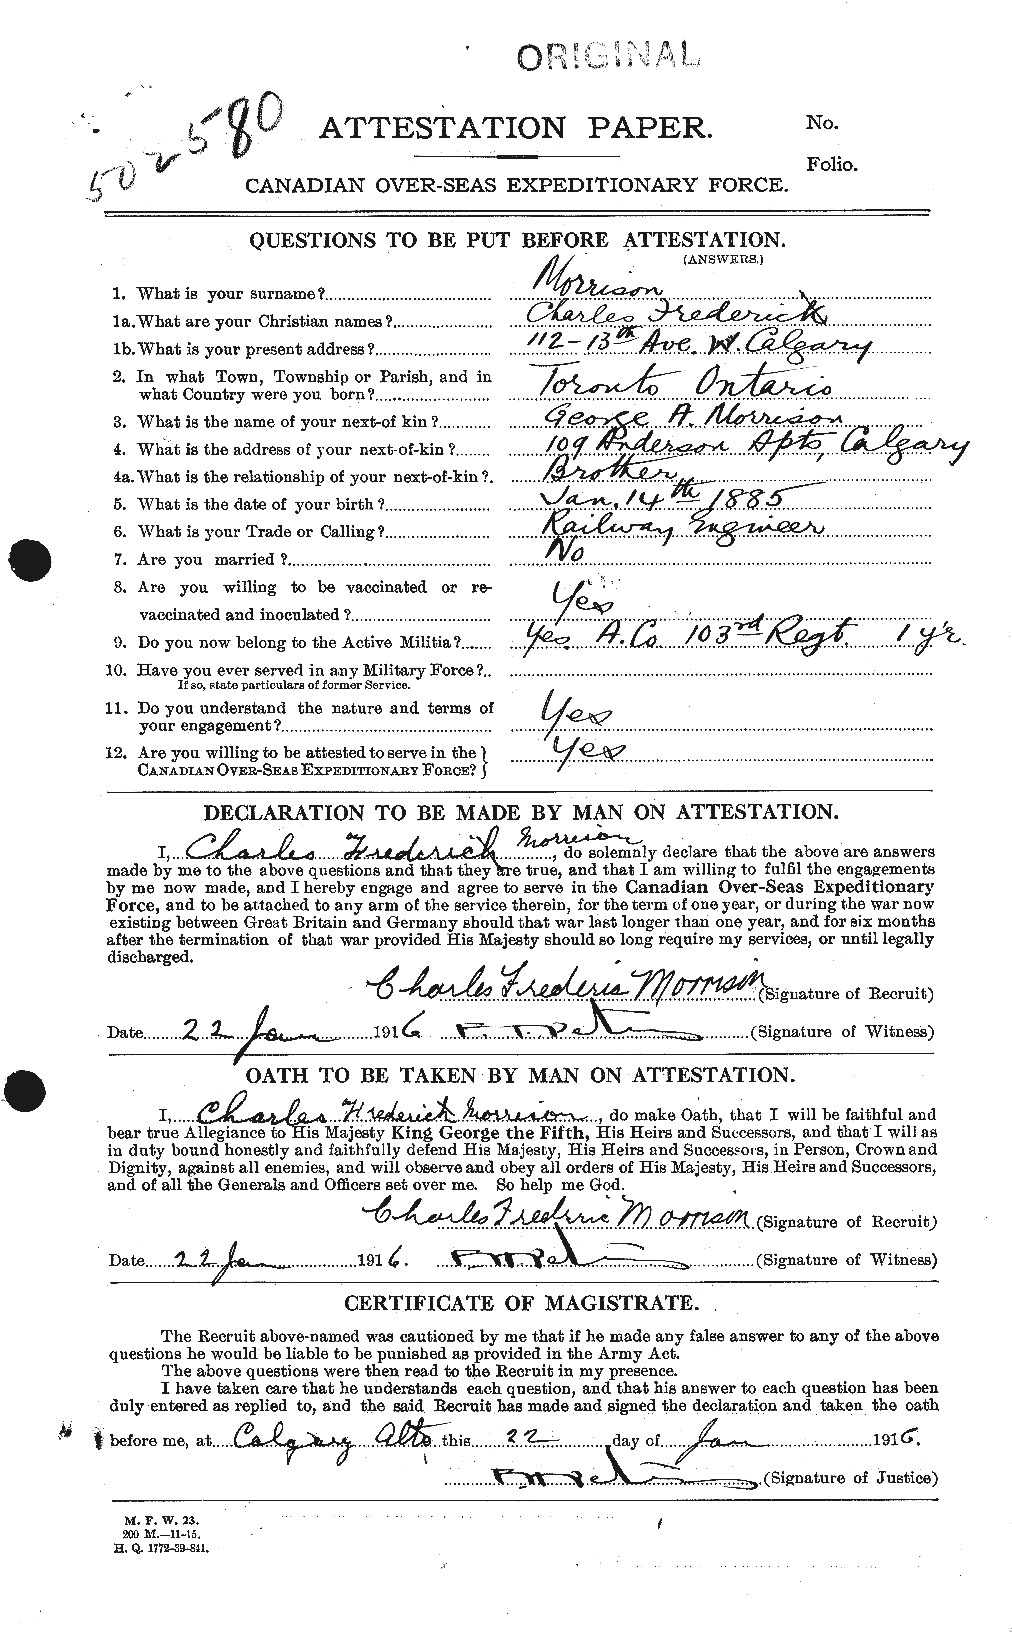 ORIGINAL
502580
ATTESTATION PAPER.
No.
Folio.
CANADIAN OVER-SEAS EXPEDITIONARY FORCE.
QUESTIONS TO BE PUT BEFORE ATTESTATION.
(ANSWERS.)
1. What is your surname? Morrison
1a. What are your Christian names? Charles Frederick
1b. What is your present address? 112-13th Ave. W. Calgary
2. In what Town, Township or Parish, and in
what Country were you born? Toronto Ontario
3. What is the name of your next-of kin? George A. Morrison
4. What is the address of your next-of-kin? 109 Anderson Apts, Calgary
4a. What is the relationship of your next-of-kin? Brother
5. What is the date of your birth? Jan. 14th 1885
6. What is your Trade or Calling? Railway Engineer
7. Are you married? No
8. Are you willing to be vaccinated or re-
vaccinated and inoculated? Yes
9. Do you now belong to the Active Militia? Yes. A. Co. 103rd Regt. 1 yr.
10. Have you ever served in any Military Force?
If so, state particulars of former Service.
11. Do you understand the nature and terms of
your engagement? Yes
12. Are you willing to be attested to serve in the
CANADIAN OVER-SEAS EXPEDITIONARY FORCE? Yes
DECLARATION TO BE MADE BY MAN ON ATTESTATION.
I, Charles Frederick Morrison, do solemnly declare that the above are answers
made by me to the above questions and that they are true, and that I am willing to fulfil the engagements
by me now made, and I hereby engage and agree to serve in the Canadian Over-Seas Expeditionary
Force, and to be attached to any arm of the service therein, for the term of one year, or during the war now
existing between Great Britain and Germany should that war last longer than one year, and for six months
after the termination of that war provided His Majesty should so long require my services, or until legally
discharged.
Charles Frederic Morrison (Signature of Recruit)
Date 22 Jan 1916 (Signature of Witness)
OATH TO BE TAKEN BY MAN ON ATTESTATION.
I, Charles Frederick Morrison, do make Oath, that I will be faithful and
bear true Allegiance to His Majesty King George the Fifth, His Heirs and Successors, and that I will as
in duty bound honestly and faithfully defend His Majesty, His Heirs and Successors, in Person, Crown and
Dignity, against all enemies, and will observe and obey all orders of His Majesty, His Heirs and Successors,
and of all the Generals and Officers set over me. So help me God.
Charles Frederic Morrison (Signature of Recruit)
Date 22 Jan 1916. (Signature of Witness)
CERTIFICATE OF MAGISTRATE.
The Recruit above-named was cautioned by me that if he made any false answer to any of the above
questions he would be liable to be punished as provided in the Army Act.
The above questions were then read to the Recruit in my presence.
I have taken care that he understands each question, and that his answer to each question has been
duly entered as replied to, and the said Recruit has made and signed the declaration and taken the oath
before me, at Calgary Alta this 22 day of Jan 1916.
(Signature of Justice)
M. F. W. 23.
200 M.—11-15.
H. Q. 1772-39-841.